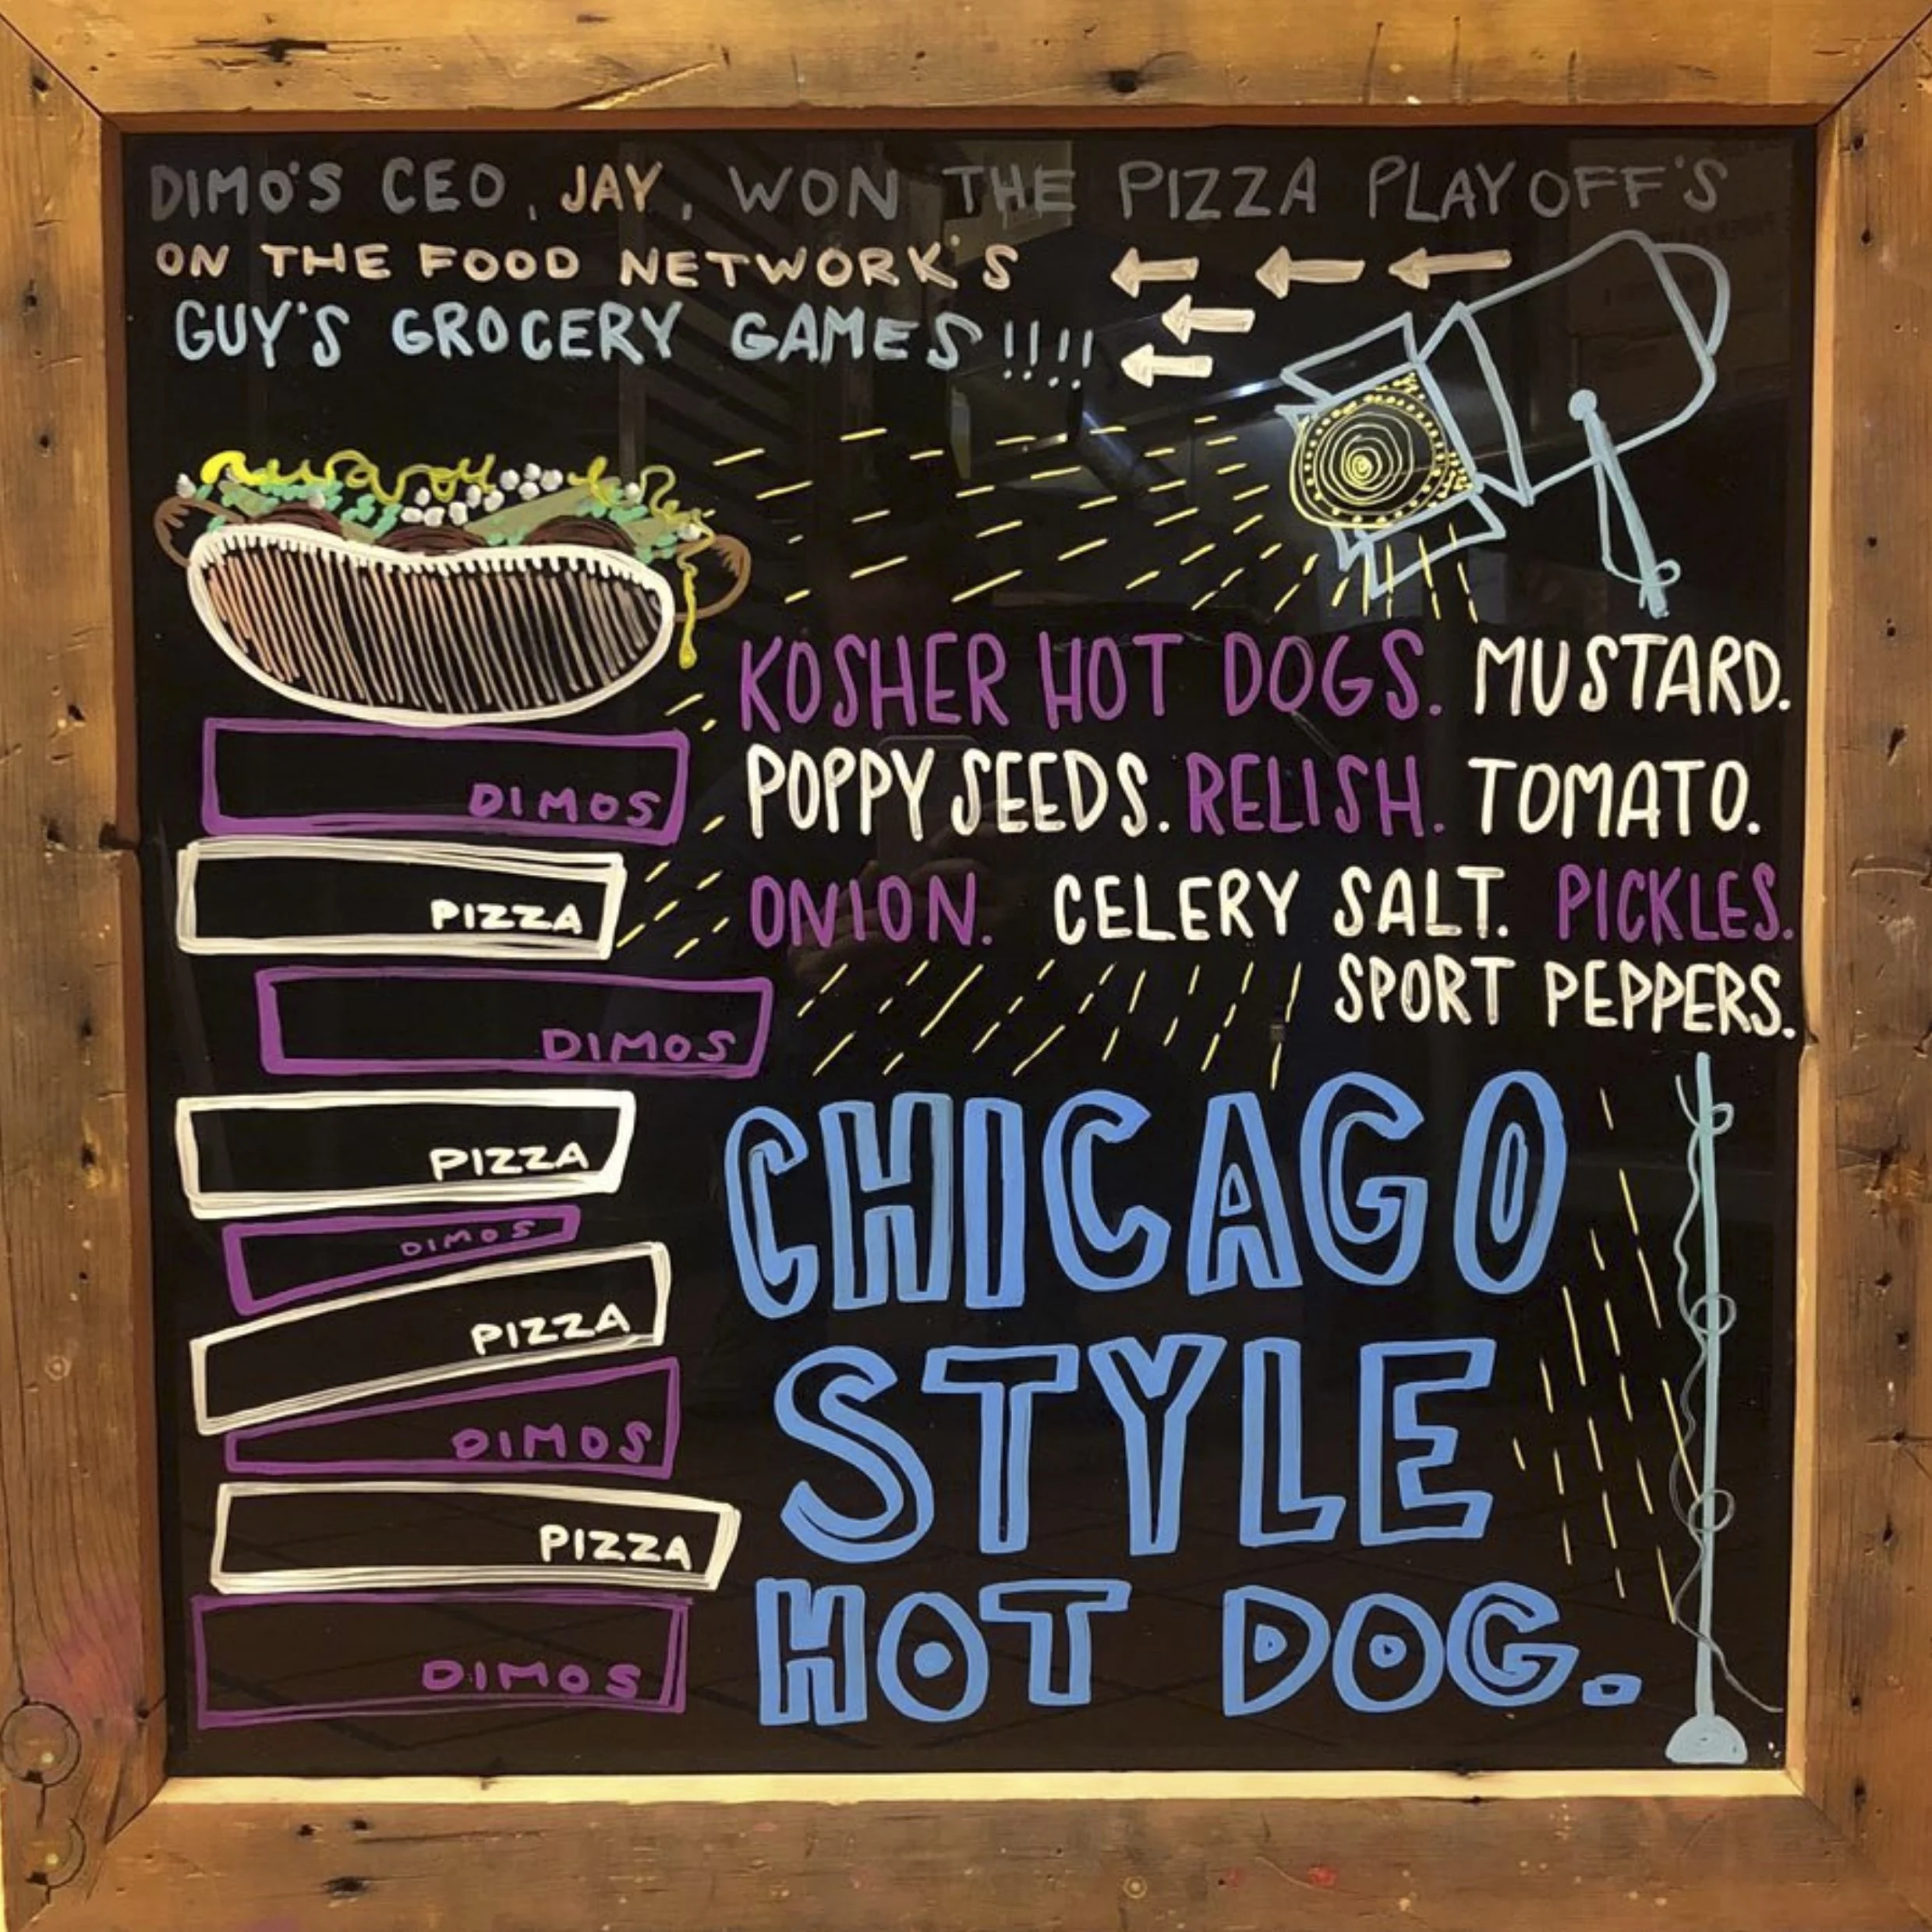 DIMO'S CEO, JAY, WON THE PIZZA PLAYOFF'S
ON THE FOOD NETWORK'S
GUY'S GROCERY GAMES!!!!
KOSHER HOT DOGS. MUSTARD.
POPPY SEEDS. RELISH. TOMATO.
ONION. CELERY SALT. PICKLES.
SPORT PEPPERS.
DIMOS
PIZZA
DIMOS
PIZZA
DIMOS
PIZZA
DIMOS
PIZZA
DIMOS
CHICAGO
STYLE
HOT DOG.